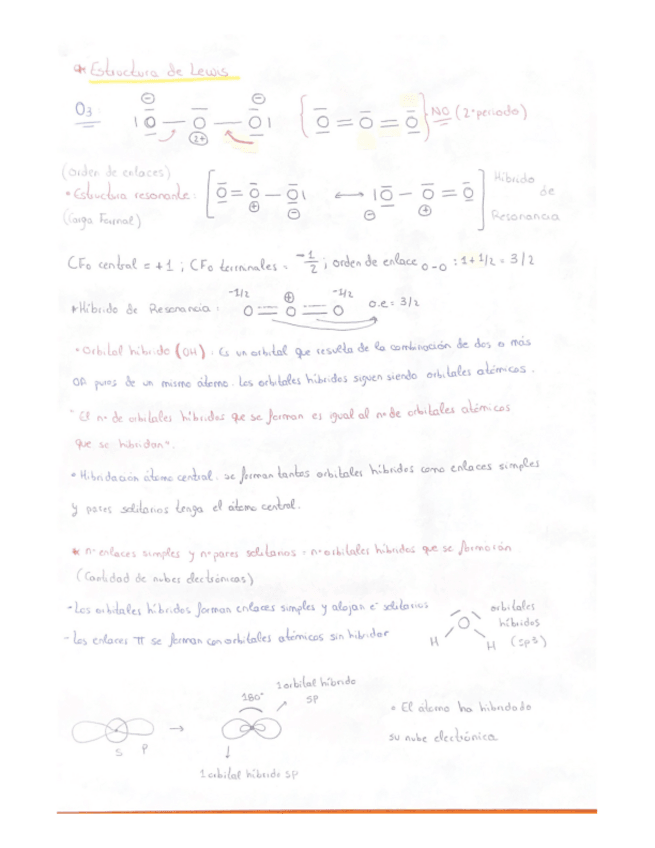 * Estructura de Lewis
O3: |O — O — O| { O = O = O } NO (2º periodo)
2+
(orden de enlaces)
• Estructura resonante: [ O = O — O| ⟷ |O — O = O ] Híbrido de Resonancia
(Carga Formal)
CFo central = +1 ; CFo terminales = -1/2 ; orden de enlace O-O : 1 + 1/2 = 3/2
* Híbrido de Resonancia : -1/2 ⊕ -1/2 o.e = 3/2
O = O = O
• Orbital híbrido (OH) : Es un orbital que resulta de la combinación de dos o más
OA puros de un mismo átomo. Los orbitales híbridos siguen siendo orbitales atómicos.
"El nº de orbitales híbridos que se forman es igual al nº de orbitales atómicos
que se hibridan".
• Hibridación átomo central: se forman tantos orbitales híbridos como enlaces simples
y pares solitarios tenga el átomo central.
* nº enlaces simples y nº pares solitarios = nº orbitales híbridos que se formarán
(Cantidad de nubes electrónicas)
- Los orbitales híbridos forman enlaces simples y alojan e⁻ solitarios
- Los enlaces π se forman con orbitales atómicos sin hibridar
O orbitales
híbridos
H H (sp3)
1 orbital híbrido
180° sp
S P →
1 orbital híbrido sp
• El átomo ha hibridado
su nube electrónica